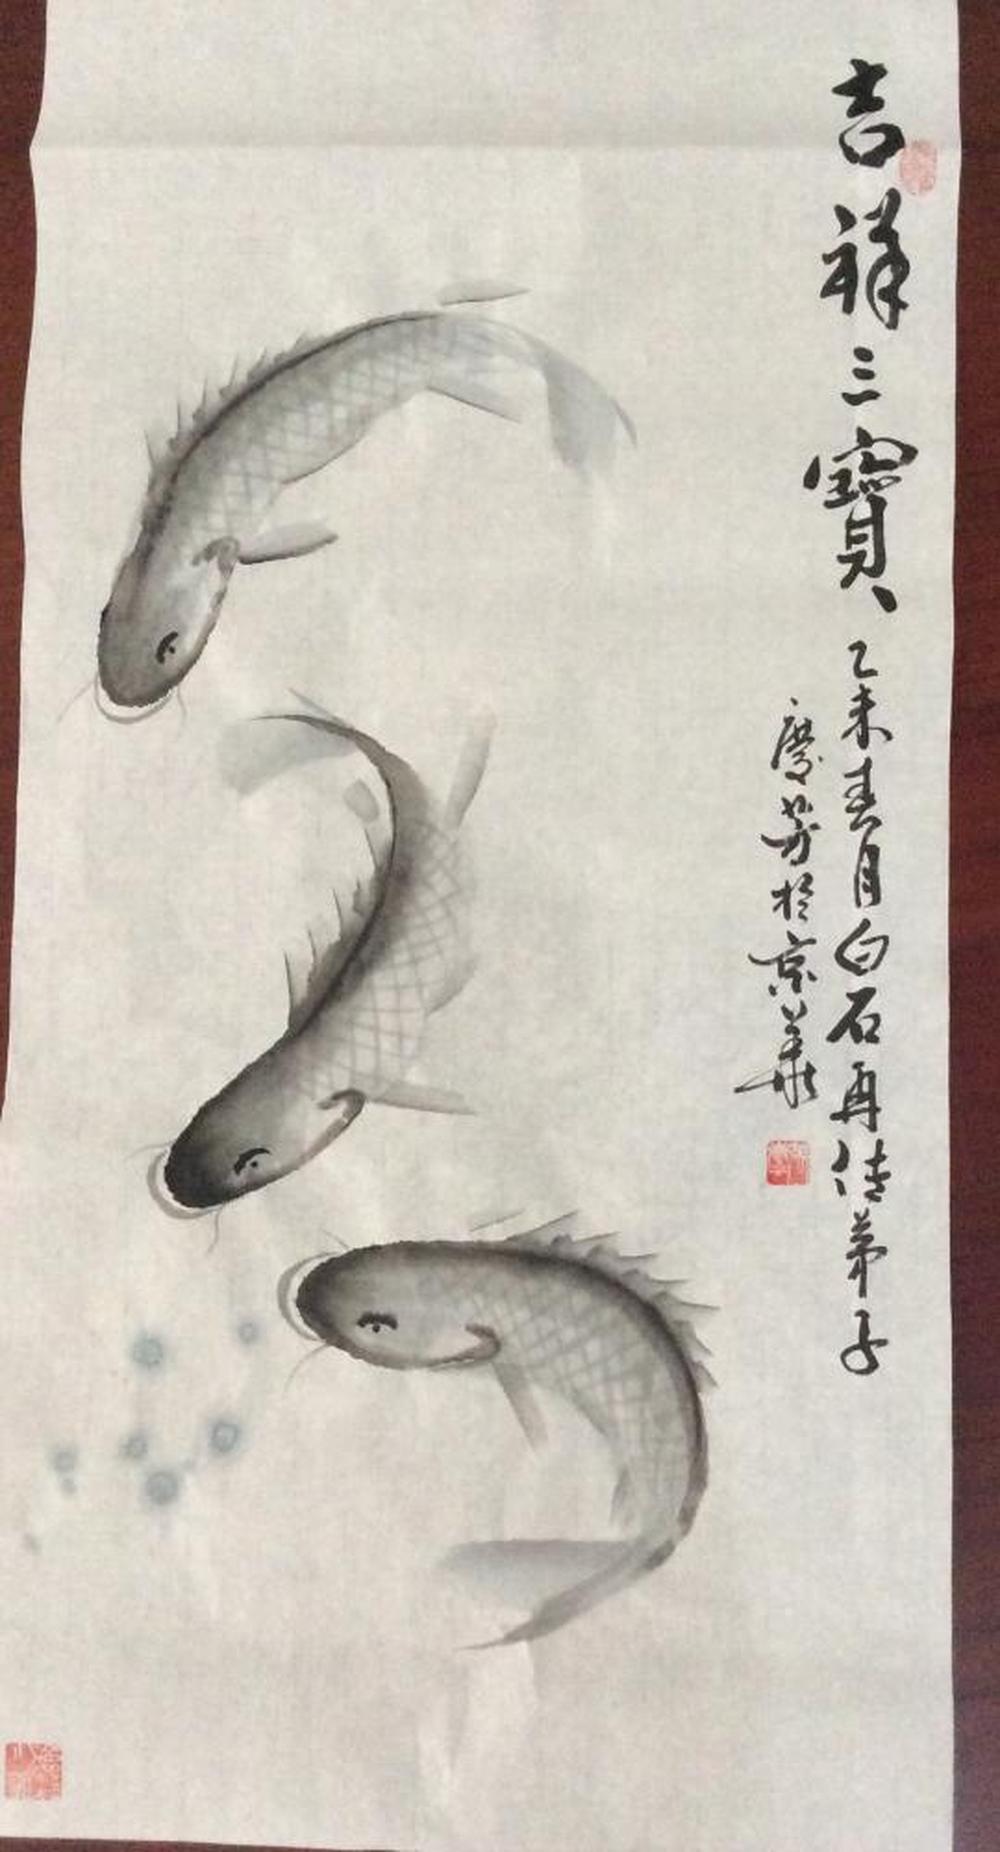 吉祥三寶
乙未春月白石再传弟子
慶芳於京華